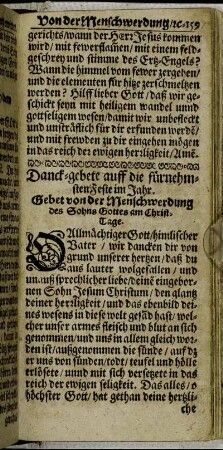 Von der Menschwerdung/ꝛc. 159
gerichts/wann der Herr Jesus kommen
wird/mit fewerflam̃en/mit einem feld-
geschrey und stimme des Ertz-Engels?
Wann die himmel vom fewer zergehen/
und die elementen für hitze zerschmeltzen
werden? Hilff lieber Gott/daß wir ge-
schickt seyn mit heiligem wandel und
gottseligem wesen/damit wir unbefleckt
und unsträflich für dir erfunden werdẽ/
und mit freuden zu dir eingehen mögen
in das reich der ewigen herrligkeit/Amẽ.
Danck-gebete auff die fürnehm-
sten Feste im Jahr.
Gebet von der Menschwerdung
des Sohns Gottes am Christ-
Tage.
O Allmächtiger Gott/himlischer
Vater/wir dancken dir von
grund unserer hertzen/daß du
aus lauter wolgefallen/und
unaußsprachlicher liebe/deine eingebor-
nen Sohn Jesum Christum/den glantz
deiner herrligkeit/und das ebenbild dei-
nes wesens in diese welt gesãd hast/wel-
cher unser armes fleisch und blut an sich
genommen/und uns in allem gleich wor-
den ist/außgenommen die sünde/auf dz
er uns von sünden/todt/teufel und hölle
erlösete/unnd mit sich versetzete in das
reich der ewigen seligkeit. Das alles/o
höchster Gott/hat gethan deine hertzli-
che